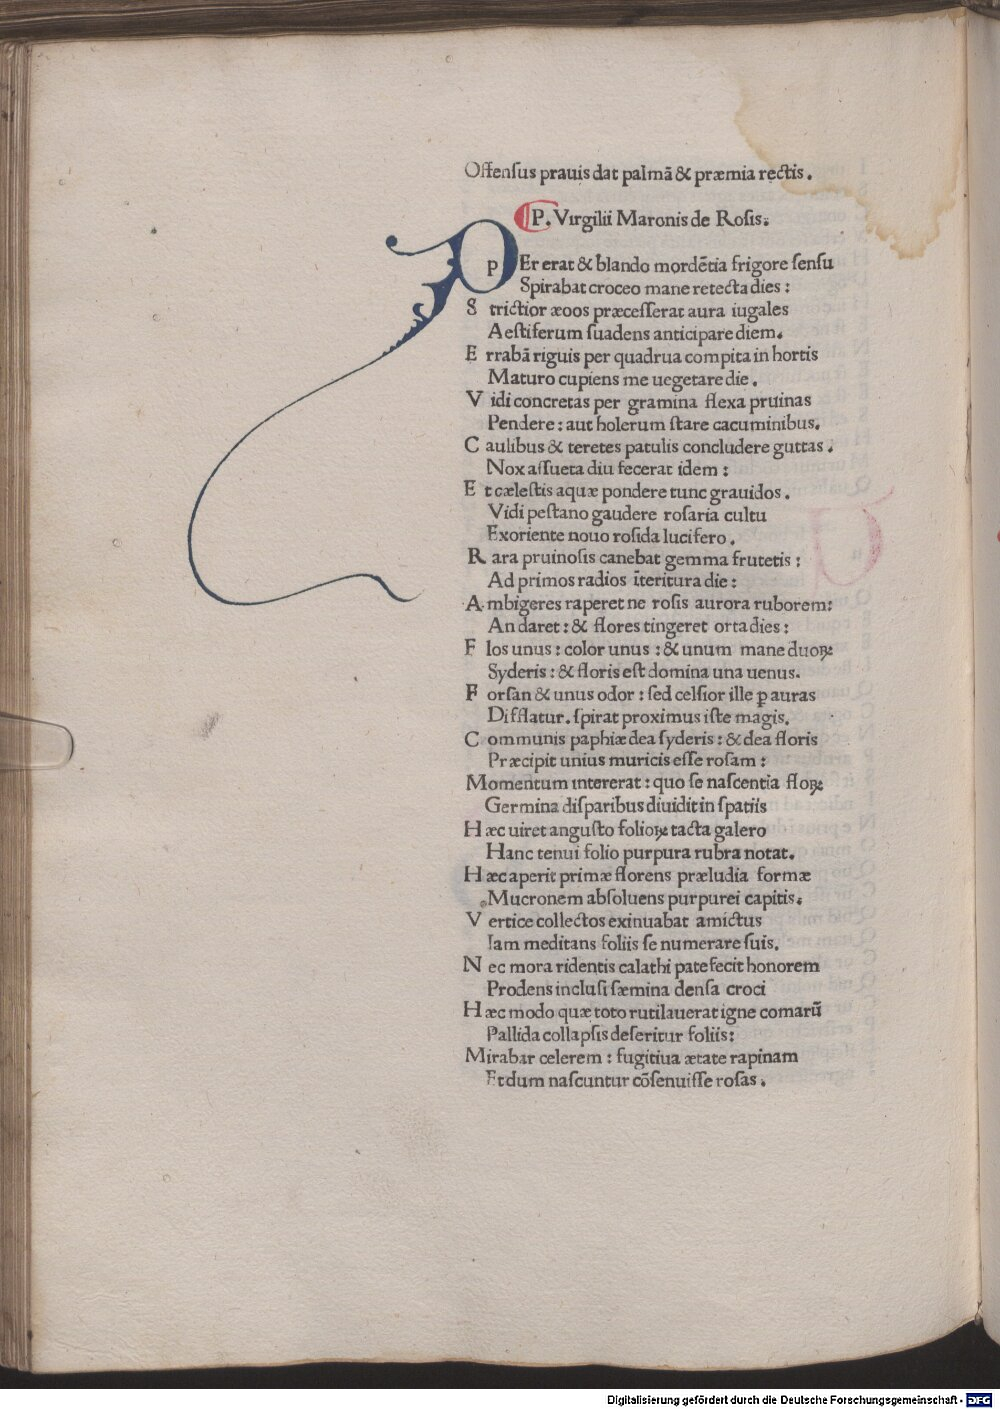 Oſtenſus prauis dat palmā & præmia rectis.
P. Virgilii Maronis de Roſis.
pEr erat & blando mordētia frigore ſenſu
Spirabat croceo mane retecta dies:
S trictior æoos præceſſerat aura iugales
Aeſtiferum ſuadens anticipare diem.
E rrabā riguis per quadrua compita in hortis
Maturo cupiens me uegetare die.
V idi concretas per gramina flexa pruinas
Pendere: aut holerum ſtare cacuminibus.
C aulibus & teretes patulis concludere guttas.
Nox aſſueta diu fecerat idem:
E t cæleſtis aquæ pondere tunc grauidos.
Vidi peſtano gaudere roſaria cultu
Exoriente nouo roſida lucifero.
R ara pruinoſis canebat gemma frutetis:
Ad primos radios īteritura die:
A mbigeres raperet ne roſis aurora ruborem:
An daret: & flores tingeret orta dies:
F los unus: color unus: & unum mane duoꝝ
Syderis: & floris eſt domina una uenus.
F orſan & unus odor: ſed celſior ille ꝑ auras
Difflatur. ſpirat proximus iſte magis.
C ommunis paphiæ dea ſyderis: & dea floris
Præcipit unius muricis eſſe roſam:
Momentum intererat: quo ſe naſcentia floꝝ
Germina diſparibus diuidit in ſpatiis
H æc uiret anguſto folioꝝ tacta galero
Hanc tenui folio purpura rubra notat.
H æc aperit primæ florens præludia formæ
Mucronem abſoluens purpurei capitis.
V ertice collectos exinuabat amictus
Iam meditans foliis ſe numerare ſuis.
N ec mora ridentis calathi patefecit honorem
Prodens incluſi ſæmina denſa croci
H æc modo quæ toto rutilauerat igne comarū
Pallida collapſis deſeritur foliis:
Mirabar celerem: fugitiua ætate rapinam
Et dum naſcuntur cōſenuiſſe roſas.
Digitalisierung gefördert durch die Deutsche Forschungsgemeinschaft - DFG